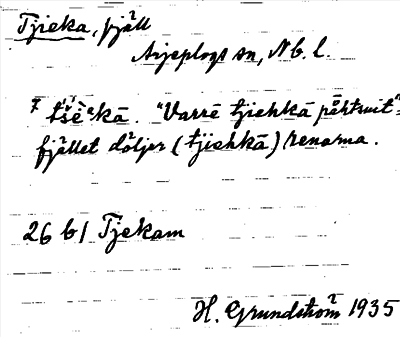 Tjieka, fjäll
Arjeplogs sn, Nb. l.
"Varrē tjiehkā påhtsuit" =
fjället döljer (tjiehkā) renarna.
26 b1 Tjekam
H. Grundström 1935